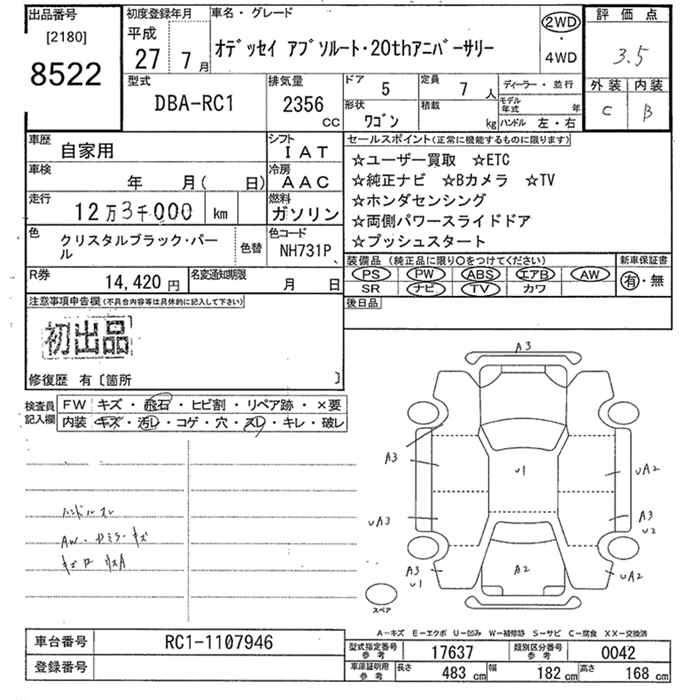 出品番号
[2180]
8522
初度登録年月
平成
27 7月
車名・グレード
オデッセイ アブソルート・20thアニバーサリー
2WD
・
4WD
評価点
3.5
外装 内装
C B
型式
DBA-RC1
排気量
2356
CC
ドア 5
定員 7人
形状
ワゴン
積載
kg
ディーラー・並行
モデル年式 年
ハンドル 左・右
車歴
自家用
シフト
IAT
車検
年 月( 日)
冷房
AAC
走行
12万3千000 km
燃料
ガソリン
色
クリスタルブラック・パール
色替
色コード
NH731P
R券
14,420円
名変通知期限
月 日
セールスポイント(正常に機能するものに限ります)
☆ユーザー買取 ☆ETC
☆純正ナビ ☆Bカメラ ☆TV
☆ホンダセンシング
☆両側パワースライドドア
☆プッシュスタート
装備品(純正品に限り○をつけてください)
PS PW ABS エアB AW
SR ナビ TV カワ
新車保証書
有・無
後日品
注意事項申告欄(不具合内容等は具体的に記入して下さい)
初出品
修復歴 有〔箇所 〕
検査員
記入欄
FW キズ・飛石・ヒビ割・リペア跡・×要
内装 キズ・汚レ・コゲ・穴・スレ・キレ・破レ
ハンドルスレ
AW・ドミラーキズ
A3
A3
U1
UA2
UA3
A3
U2
A3
U1
A2
UA2
A3
スペア
A-キズ E-エクボ U-凹み W-補修跡 S-サビ C-腐食 XX-交換済
車台番号
RC1-1107946
登録番号
型式指定番号
参考
17637
類別区分番号
参考
0042
車庫証明用
参考
長さ 483 cm
幅 182 cm
高さ 168 cm